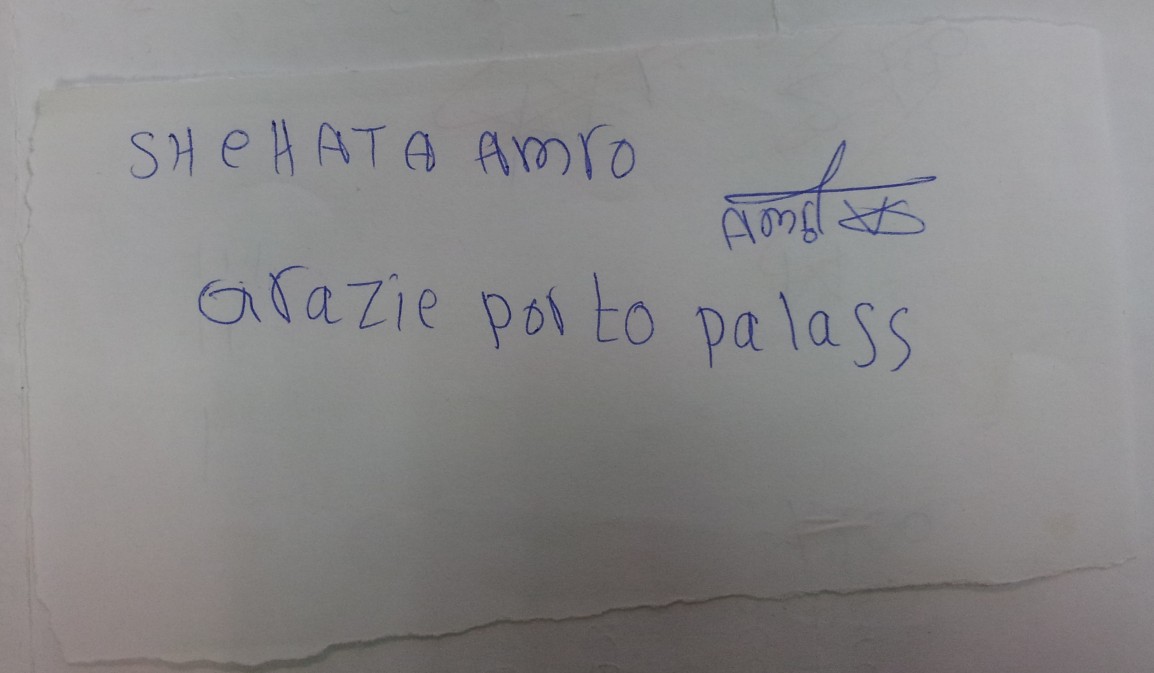 SHeHATA Amro
Grazie porto palass